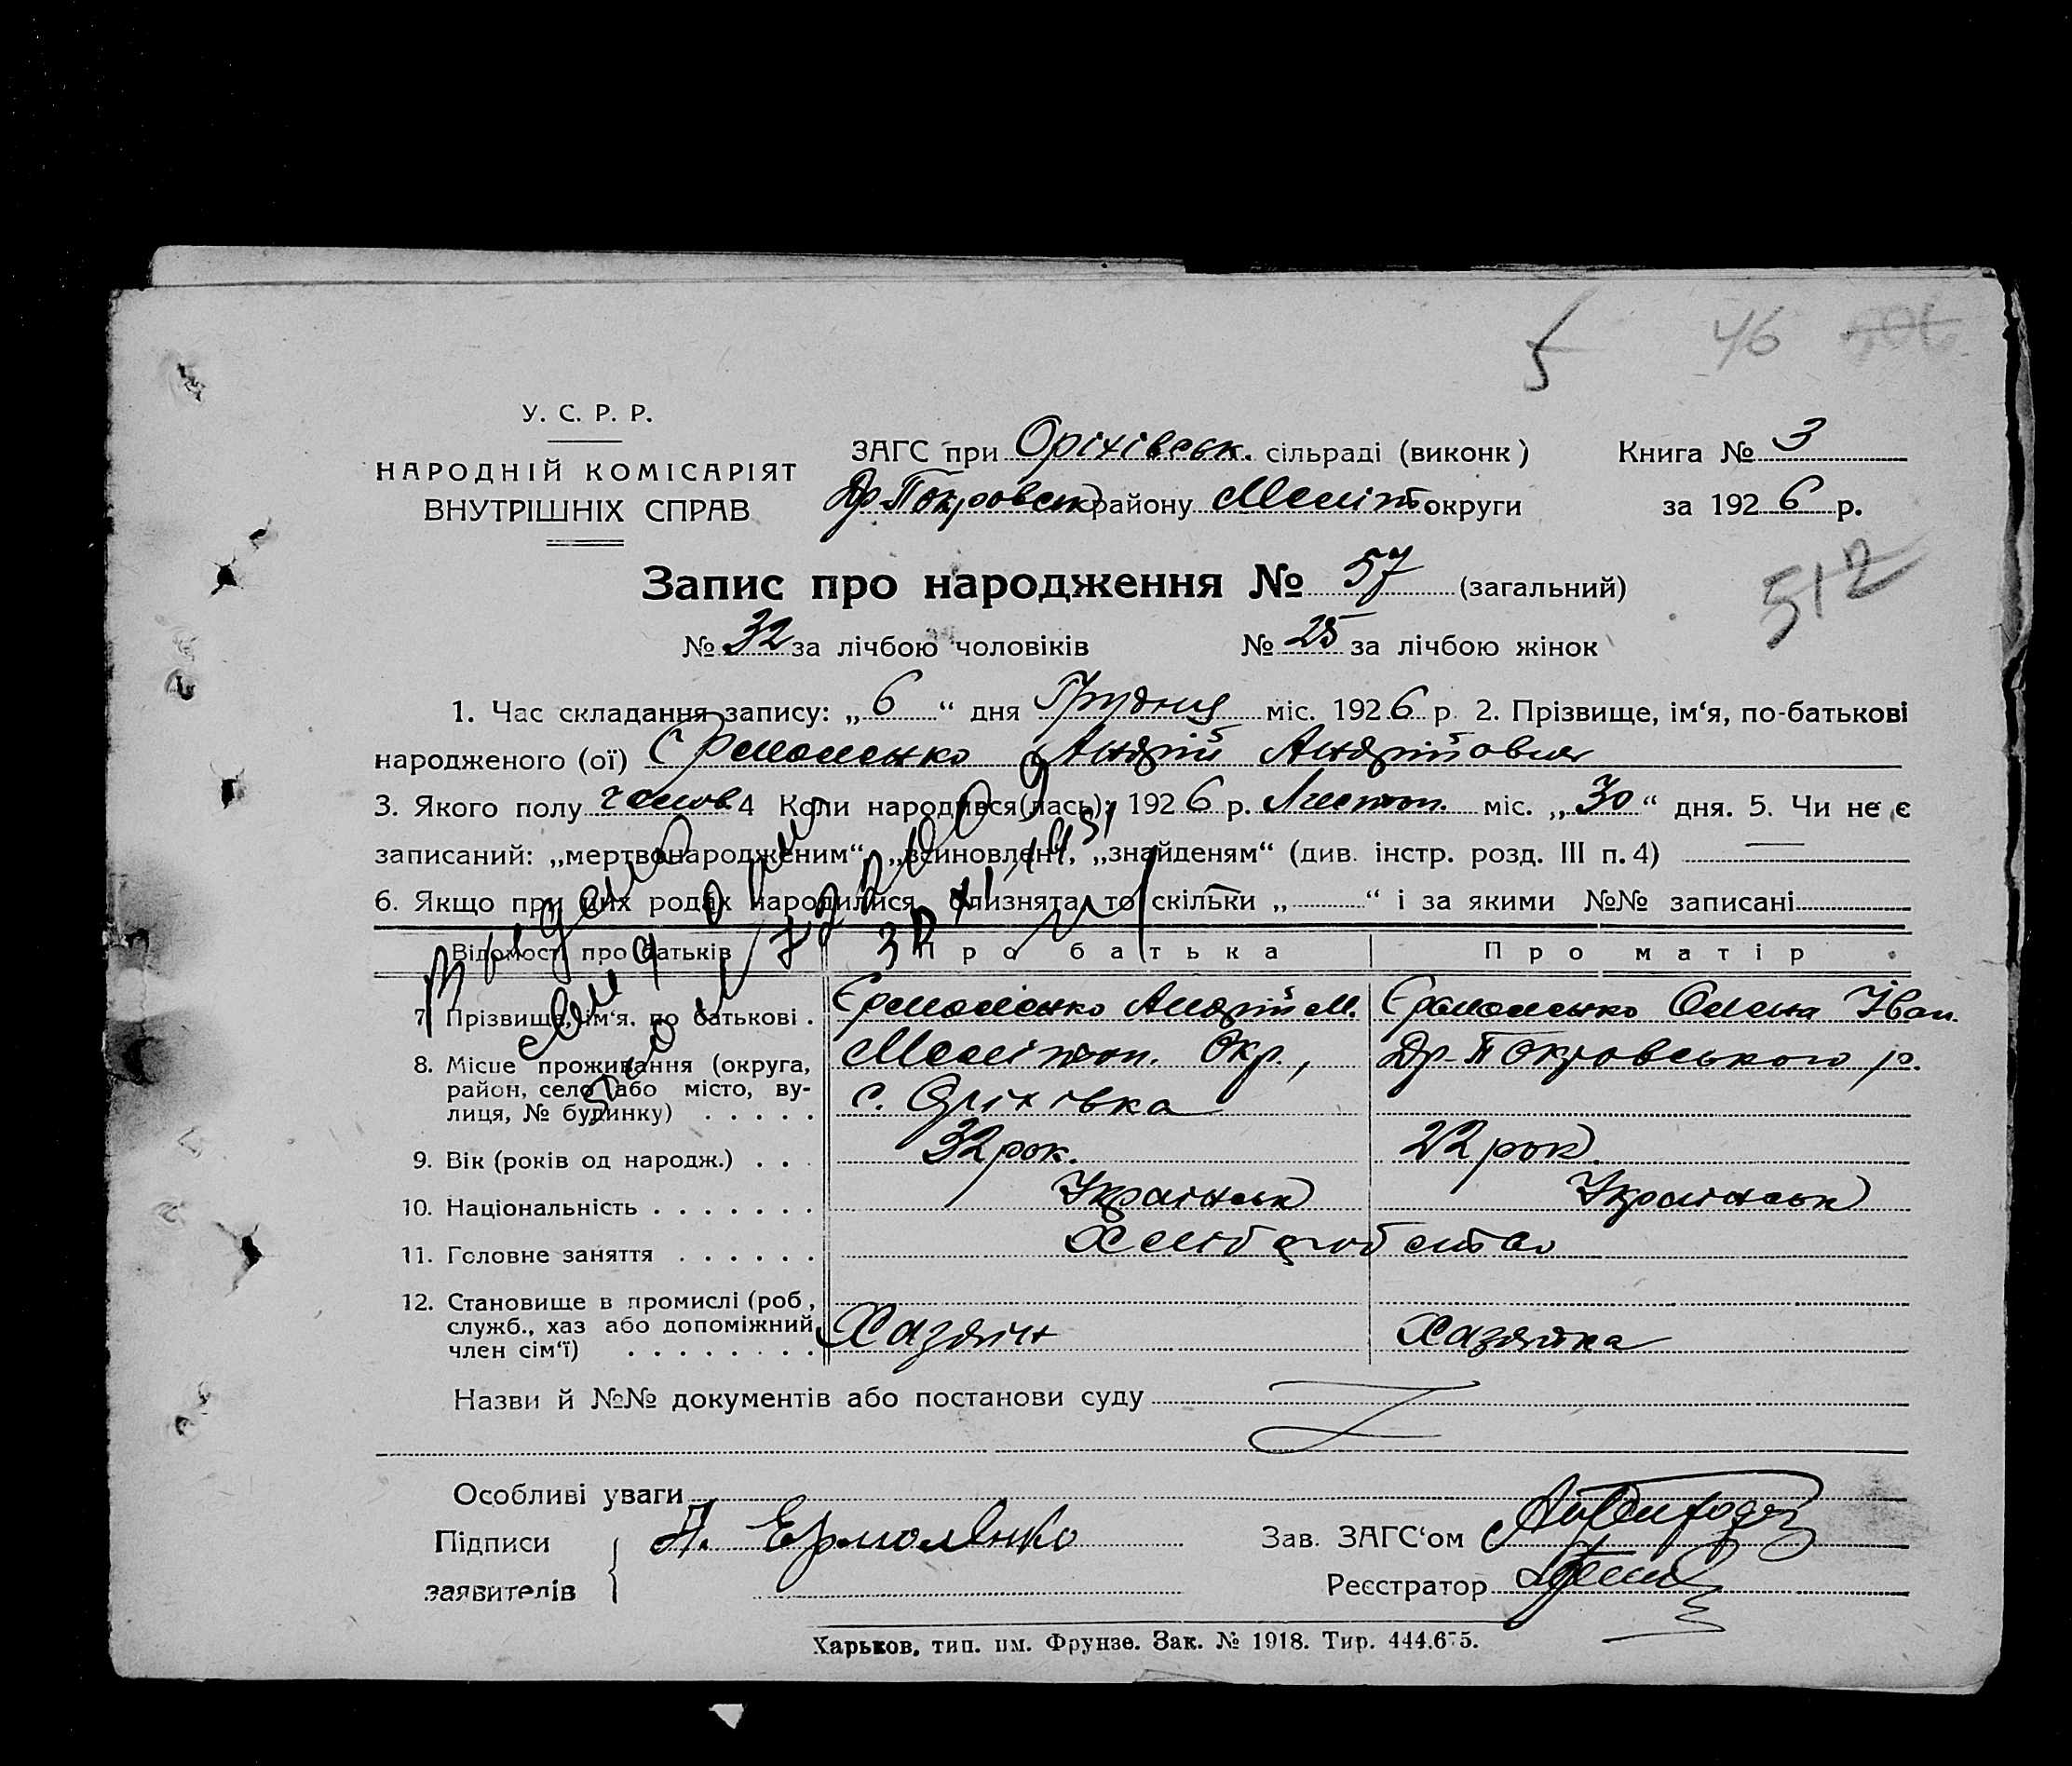 5 46 506
У. С. Р. Р.
НАРОДНІЙ КОМІСАРІЯТ
ВНУТРІШНІХ СПРАВ
ЗАГС при Оріхівськ. сільраді (виконк) Книга № 3
Др. Покровськ району Меліт округи за 1926 р.
512
Запис про народження № 57 (загальний)
№ 32 за лічбою чоловіків № 25 за лічбою жінок
1. Час складання запису: „6“ дня Грудня міс. 1926 р. 2. Прізвище, ім‘я, по-батькові
народженого (ої) Єрмоленко Андрій Андрійович
3. Якого полу чолов. 4 Коли народився(лась): 1926 р. Листоп. міс. „30“ дня. 5. Чи не є
записаний: „мертвонародженим“, „всиновлен“, „знайденям“ (див. інстр. розд. III п. 4) —
6. Якщо при цих родах народилися близнята, то скільки „ “ і за якими №№ записані
Відомості про батьків Про батька Про матір
7. Прізвище, ім‘я, по батькові . Єрмоленко Андрій М. Єрмоленко Олена Іван.
8. Місце проживання (округа, Мелітоп. Окр., Др-Покровського р.
район, село або місто, ву- с. Оріхівка
лиця, № будинку) . . . . .
9. Вік (років од народж.) . . . 32 рок. 22 рок.
10. Національність . . . . . . . Українськ Українськ
11. Головне заняття . . . . . . Хліборобство
12. Становище в промислі (роб.,
служб., хаз або допоміжний Хазяїн Хазяйка
член сім‘ї) . . . . . . . .
Назви й №№ документів або постанови суду
Особливі уваги
Підписи А. Ермоленко Зав. ЗАГС‘ом
заявителів Реєстратор
Харьков, тип. им. Фрунзе. Зак. № 1918. Тир. 444.675.